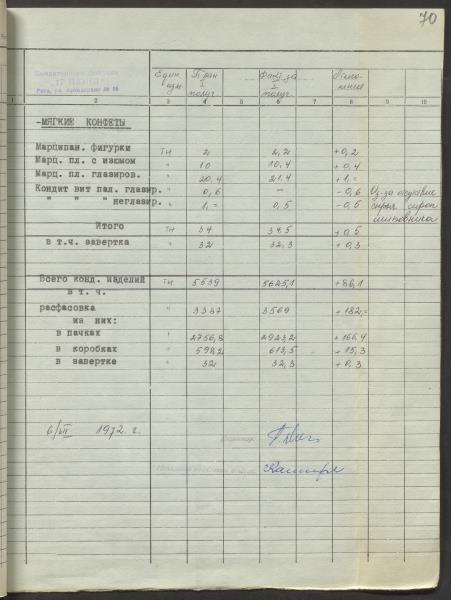 70
Кондитерская фабрика
"17 ИЮНЯ"
Рига,
Един изм План I полуг. Факт. за I полуг. Откло- нения
1 2 3 4 5 6 7 8 9 10
-МЯГКИЕ КОНФЕТЫ
Марципан. фигурки тн 2 2,2 +0,2
Марц. пл. с изюмом " 10 10,4 +0,4
Марц. пл. глазиров. " 20,4 21,4 +1,=
Кондит вит пал. глазир. " 0,6 — -0,6 Из-за отсутствие
" " " неглазир. " 1,= 0,5 -0,5 сырья сироп
шиповника
Итого тн 34 34,5 +0,5
в т.ч. завертка " 32 32,3 +0,3
Всего конд. изделий тн 5539 5625,1 +86,1
в т. ч.
расфасовка " 3387 3569 +182,=
из них:
в пачках " 2756,8 2923,2 +166,4
в коробках " 598,2 613,5 +15,3
в завертке " 32 32,3 +0,3
6/VII 1972 г.